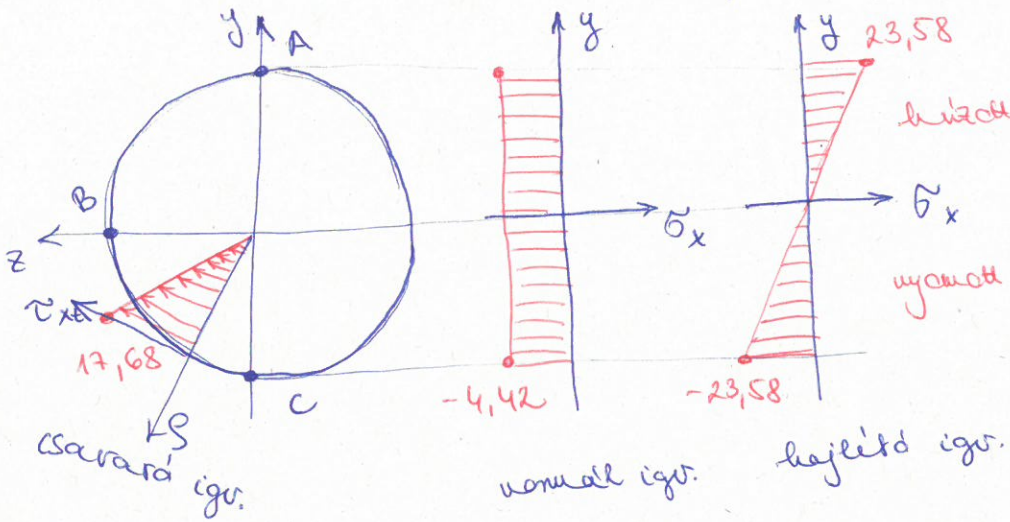 y
A
B
z
τxφ
17,68
C
ρ
csavaró igv.
y
σx
-4,42
normál igv.
y
23,58
húzott
σx
nyomott
-23,58
hajlító igv.